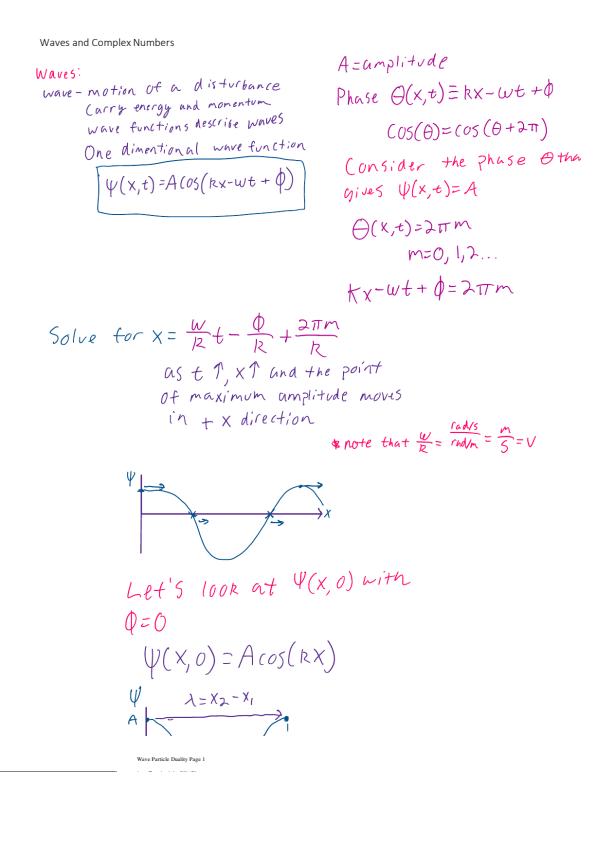 Waves and Complex Numbers
Waves:
wave - motion of a disturbance
Carry energy and momentum
wave functions describe waves
One dimentional wave function
Ψ(x,t)=Acos(kx-wt+ϕ)
A=amplitude
Phase Θ(x,t)≡kx-wt+ϕ
cos(θ)=cos(θ+2π)
Consider the phase θ tha
gives Ψ(x,t)=A
Θ(x,t)=2πm
m=0,1,2...
kx-wt+ϕ=2πm
Solve for x = w/k t - ϕ/k + 2πm/k
as t ↑, x↑ and the point
of maximum amplitude moves
in + x direction
*note that w/k = rad/s / rad/m = m/s = v
Ψ
x
Let's look at Ψ(x,0) with
ϕ=0
Ψ(x,0)=Acos(kx)
Ψ
λ=x₂-x₁
A
Wave Particle Duality Page 1